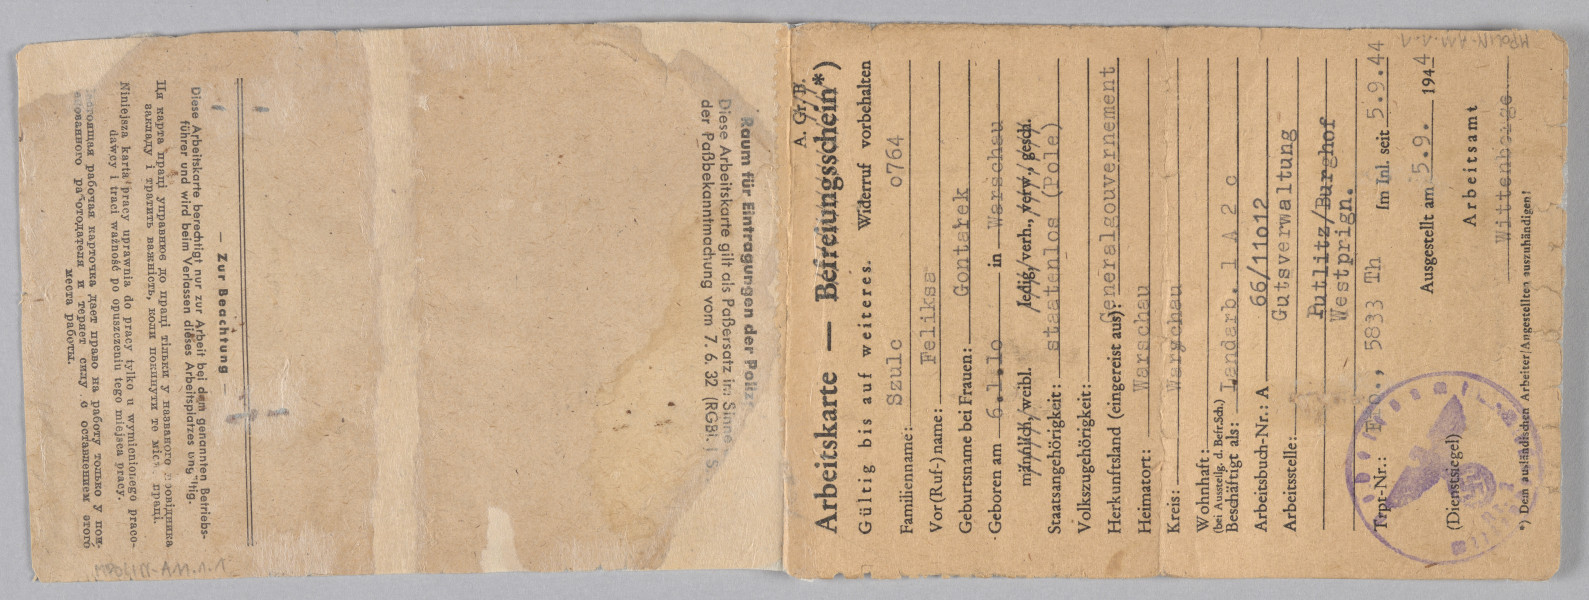 A. Gr./B.
Arbeitskarte — Befreiungsschein*)
Gültig bis auf weiteres. Widerruf vorbehalten
Familienname: Szulc o764
Vor(Ruf-)name: Feliksa
Geburtsname bei Frauen: Gontarek
Geboren am 6.1.1o in Warschau
männlich, weibl. ledig, verh., verw., gesch.
Staatsangehörigkeit: staatenlos (Pole)
Volkszugehörigkeit:
Herkunftsland (eingereist aus): Generalgouvernement
Heimatort: Warschau
Kreis: Warschau
Wohnhaft:
(bei Ausstellg. d. Befr.Sch.)
Beschäftigt als: Landarb. 1 A 2 c
Arbeitsbuch-Nr.: A 66/11o12
Arbeitsstelle: Gutsverwaltung
Putlitz/Burghof
Westprign.
Trpt-Nr.: 5833 Th Im Inl. seit 5.9.44
Ausgestellt am 5.9. 1944
Arbeitsamt
Wittenberge
(Dienstsiegel)
*) Dem ausländischen Arbeiter/Angestellten auszuhändigen!
MPOLIN-A11.1.1
Raum für Eintragungen der Polizei
Diese Arbeitskarte gilt als Paßersatz im Sinne
der Paßbekanntmachung vom 7. 6. 32 (RGBl. I S.
— Zur Beachtung —
Diese Arbeitskarte berechtigt nur zur Arbeit bei dem genannten Betriebs-
führer und wird beim Verlassen dieses Arbeitsplatzes ungültig.
Ця карта праці управнює до праці тільки у названого провідника
закладу і тратить важність, коли покинути те місце праці.
Niniejsza karta pracy uprawnia do pracy tylko u wymienionego praco-
dawcy i traci ważność po opuszczeniu tego miejsca pracy.
Настоящая рабочая карточка дает право на работу только у пои-
менованного работодателя и теряет силу с оставлением этого
места работы.
MPOLIN-A11.1.1